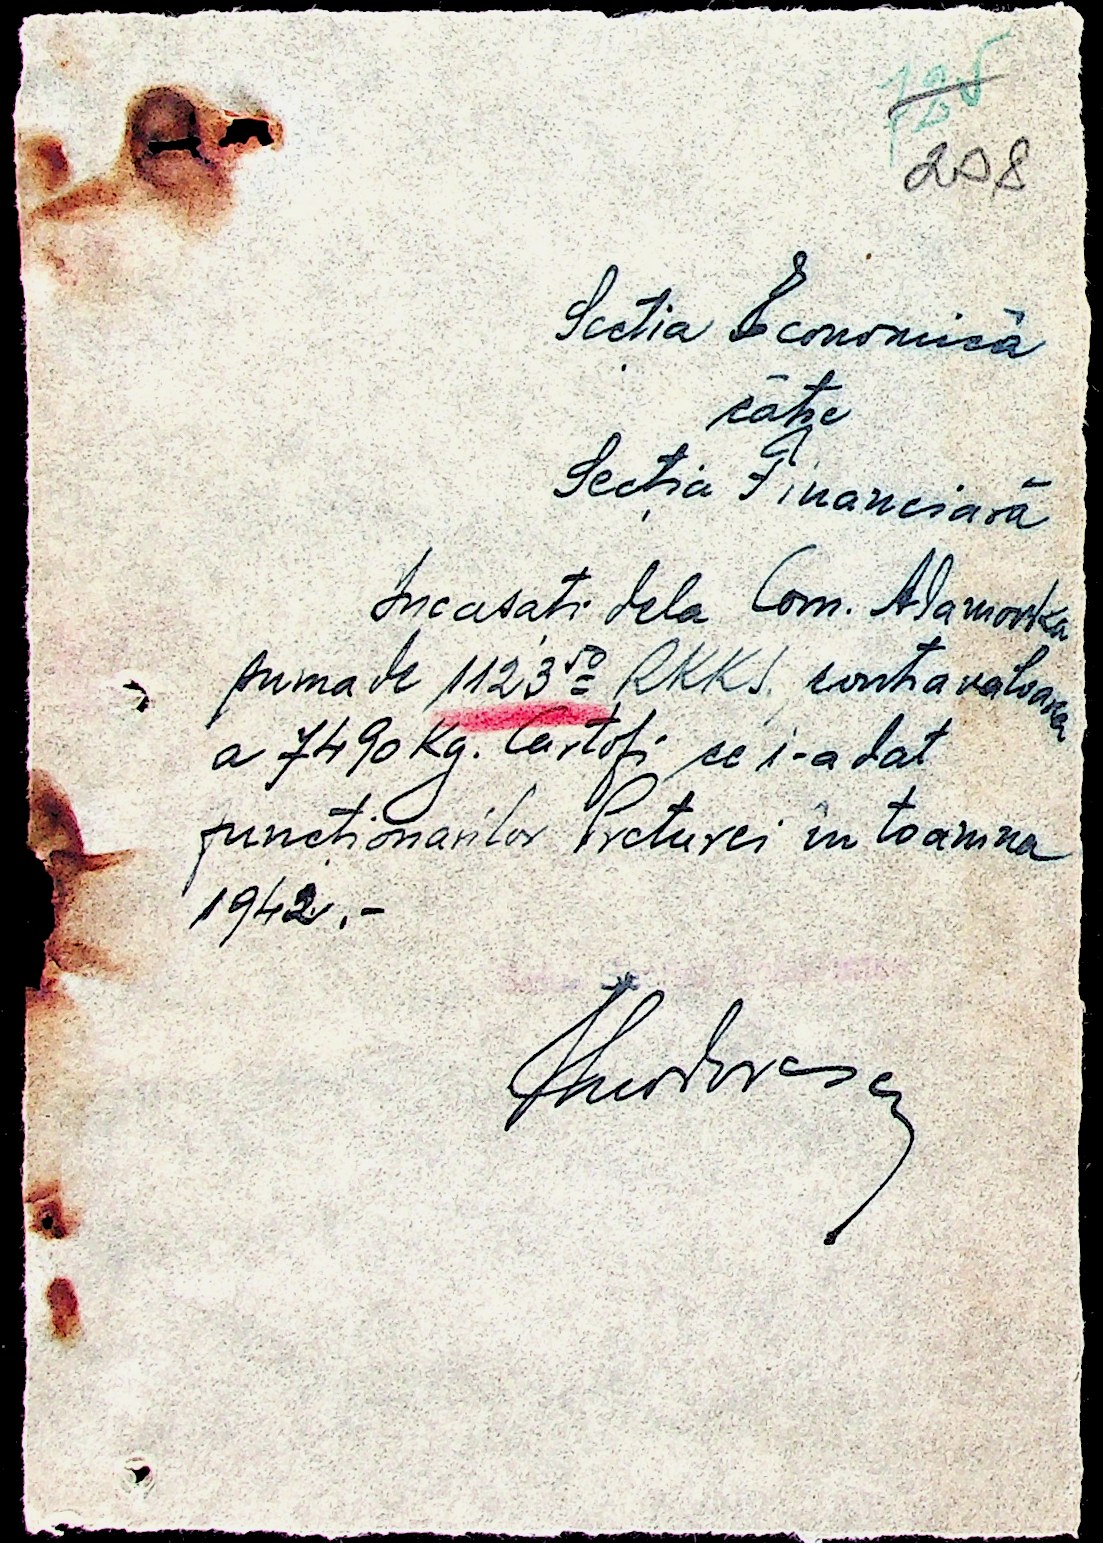 208
Secția Economică
către
Secția Financiară
Incasați dela Com. Adamovka
suma de 1123,50 RKKS. contravaloarea
a 7490 Kg. Cartofi ce i-a dat
funcționarilor Preturei în toamna
1942.-
Theodorescu